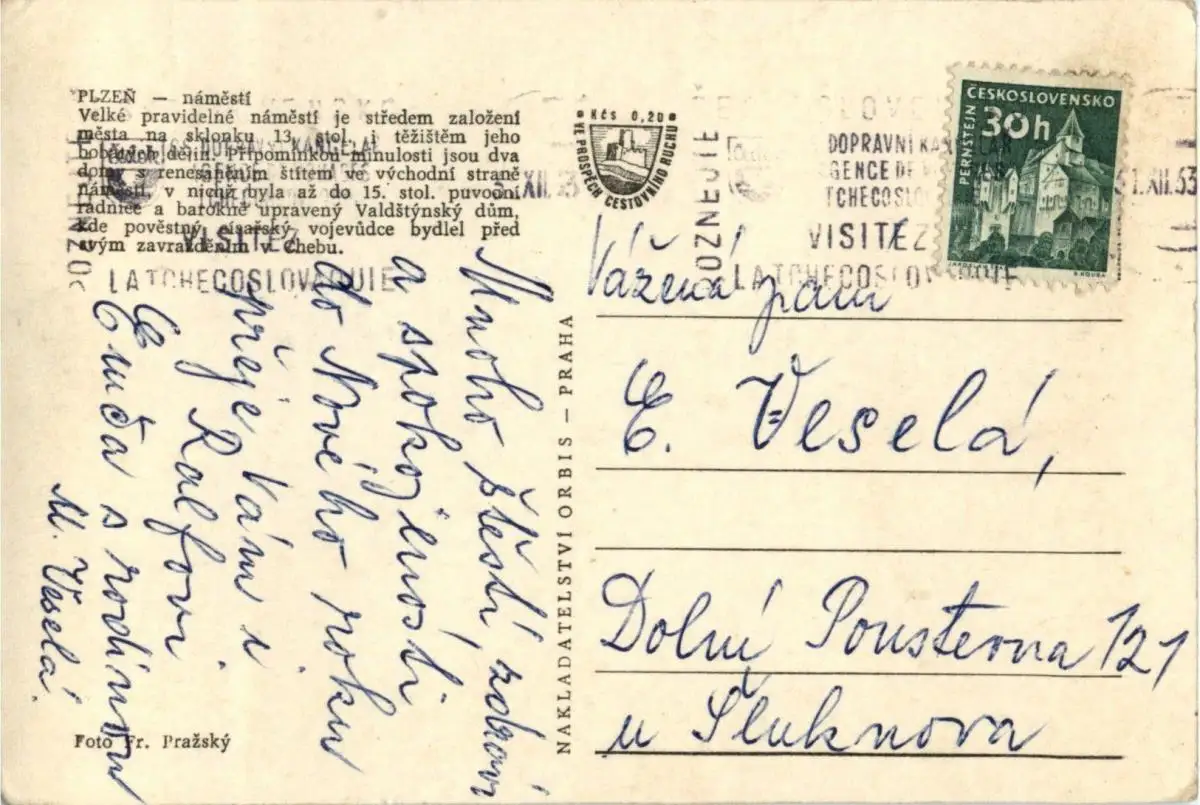 PLZEŇ — náměstí
Velké pravidelné náměstí je středem založení
města na sklonku 13. stol. i těžištěm jeho
bohatých dějin. Připomínkou minulosti jsou dva
domy s renesančním štítem ve východní straně
náměstí, v nichž byla až do 15. stol. původní
radnice a barokně upravený Valdštýnský dům,
kde pověstný císařský vojevůdce bydlel před
svým zavražděním v Chebu.
VISITEZ
LA TCHECOSLOVAQUIE
Mnoho štěstí, zdraví
a spokojenosti
do Nového roku
přeje Vám i
Ralfovi
s rodinou
M. Veselá
Foto Fr. Pražský
NAKLADATELSTVÍ ORBIS — PRAHA
KČS 0,20
VE PROSPĚCH CESTOVNÍHO RUCHU
DOPRAVNÍ KANCELÁŘ
TCHECOSLO
VISITEZ
LA TCHECOSLOVAQUIE
XII. 63
ČESKOSLOVENSKO
30h
PERNŠTEJN
Vážená paní
E. Veselá,
Dolní Pousterna 121
u Šluknova